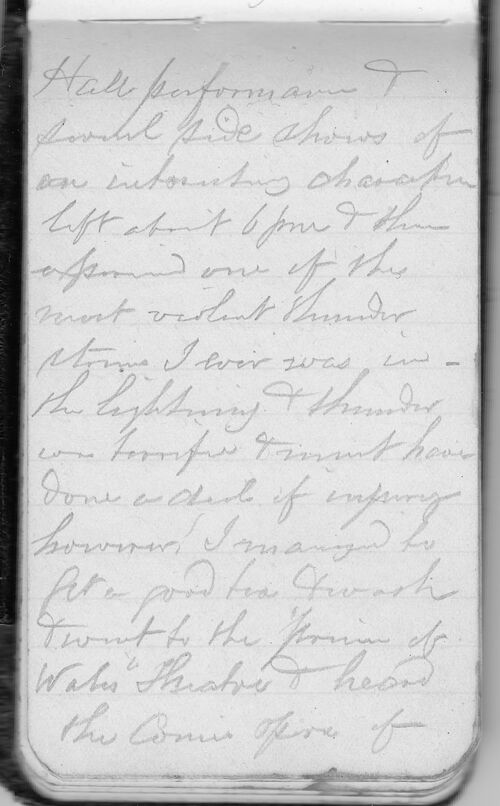 Hall performance &
several side shows of
an interesting character
left about 6 pm & then
experienced one of the
most violent thunder
storms I ever was in -
the lightning & thunder
was terrific & must have
done a deal of injury
however! I managed to
get a good tea & wash
& went to the "Prince of
Wales" Theatre & heard
the Comic Opera of